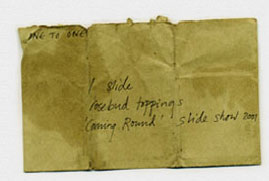 ONE TO ONE
1 slide
rosebud toppings
'Coming Round' slide show 2001